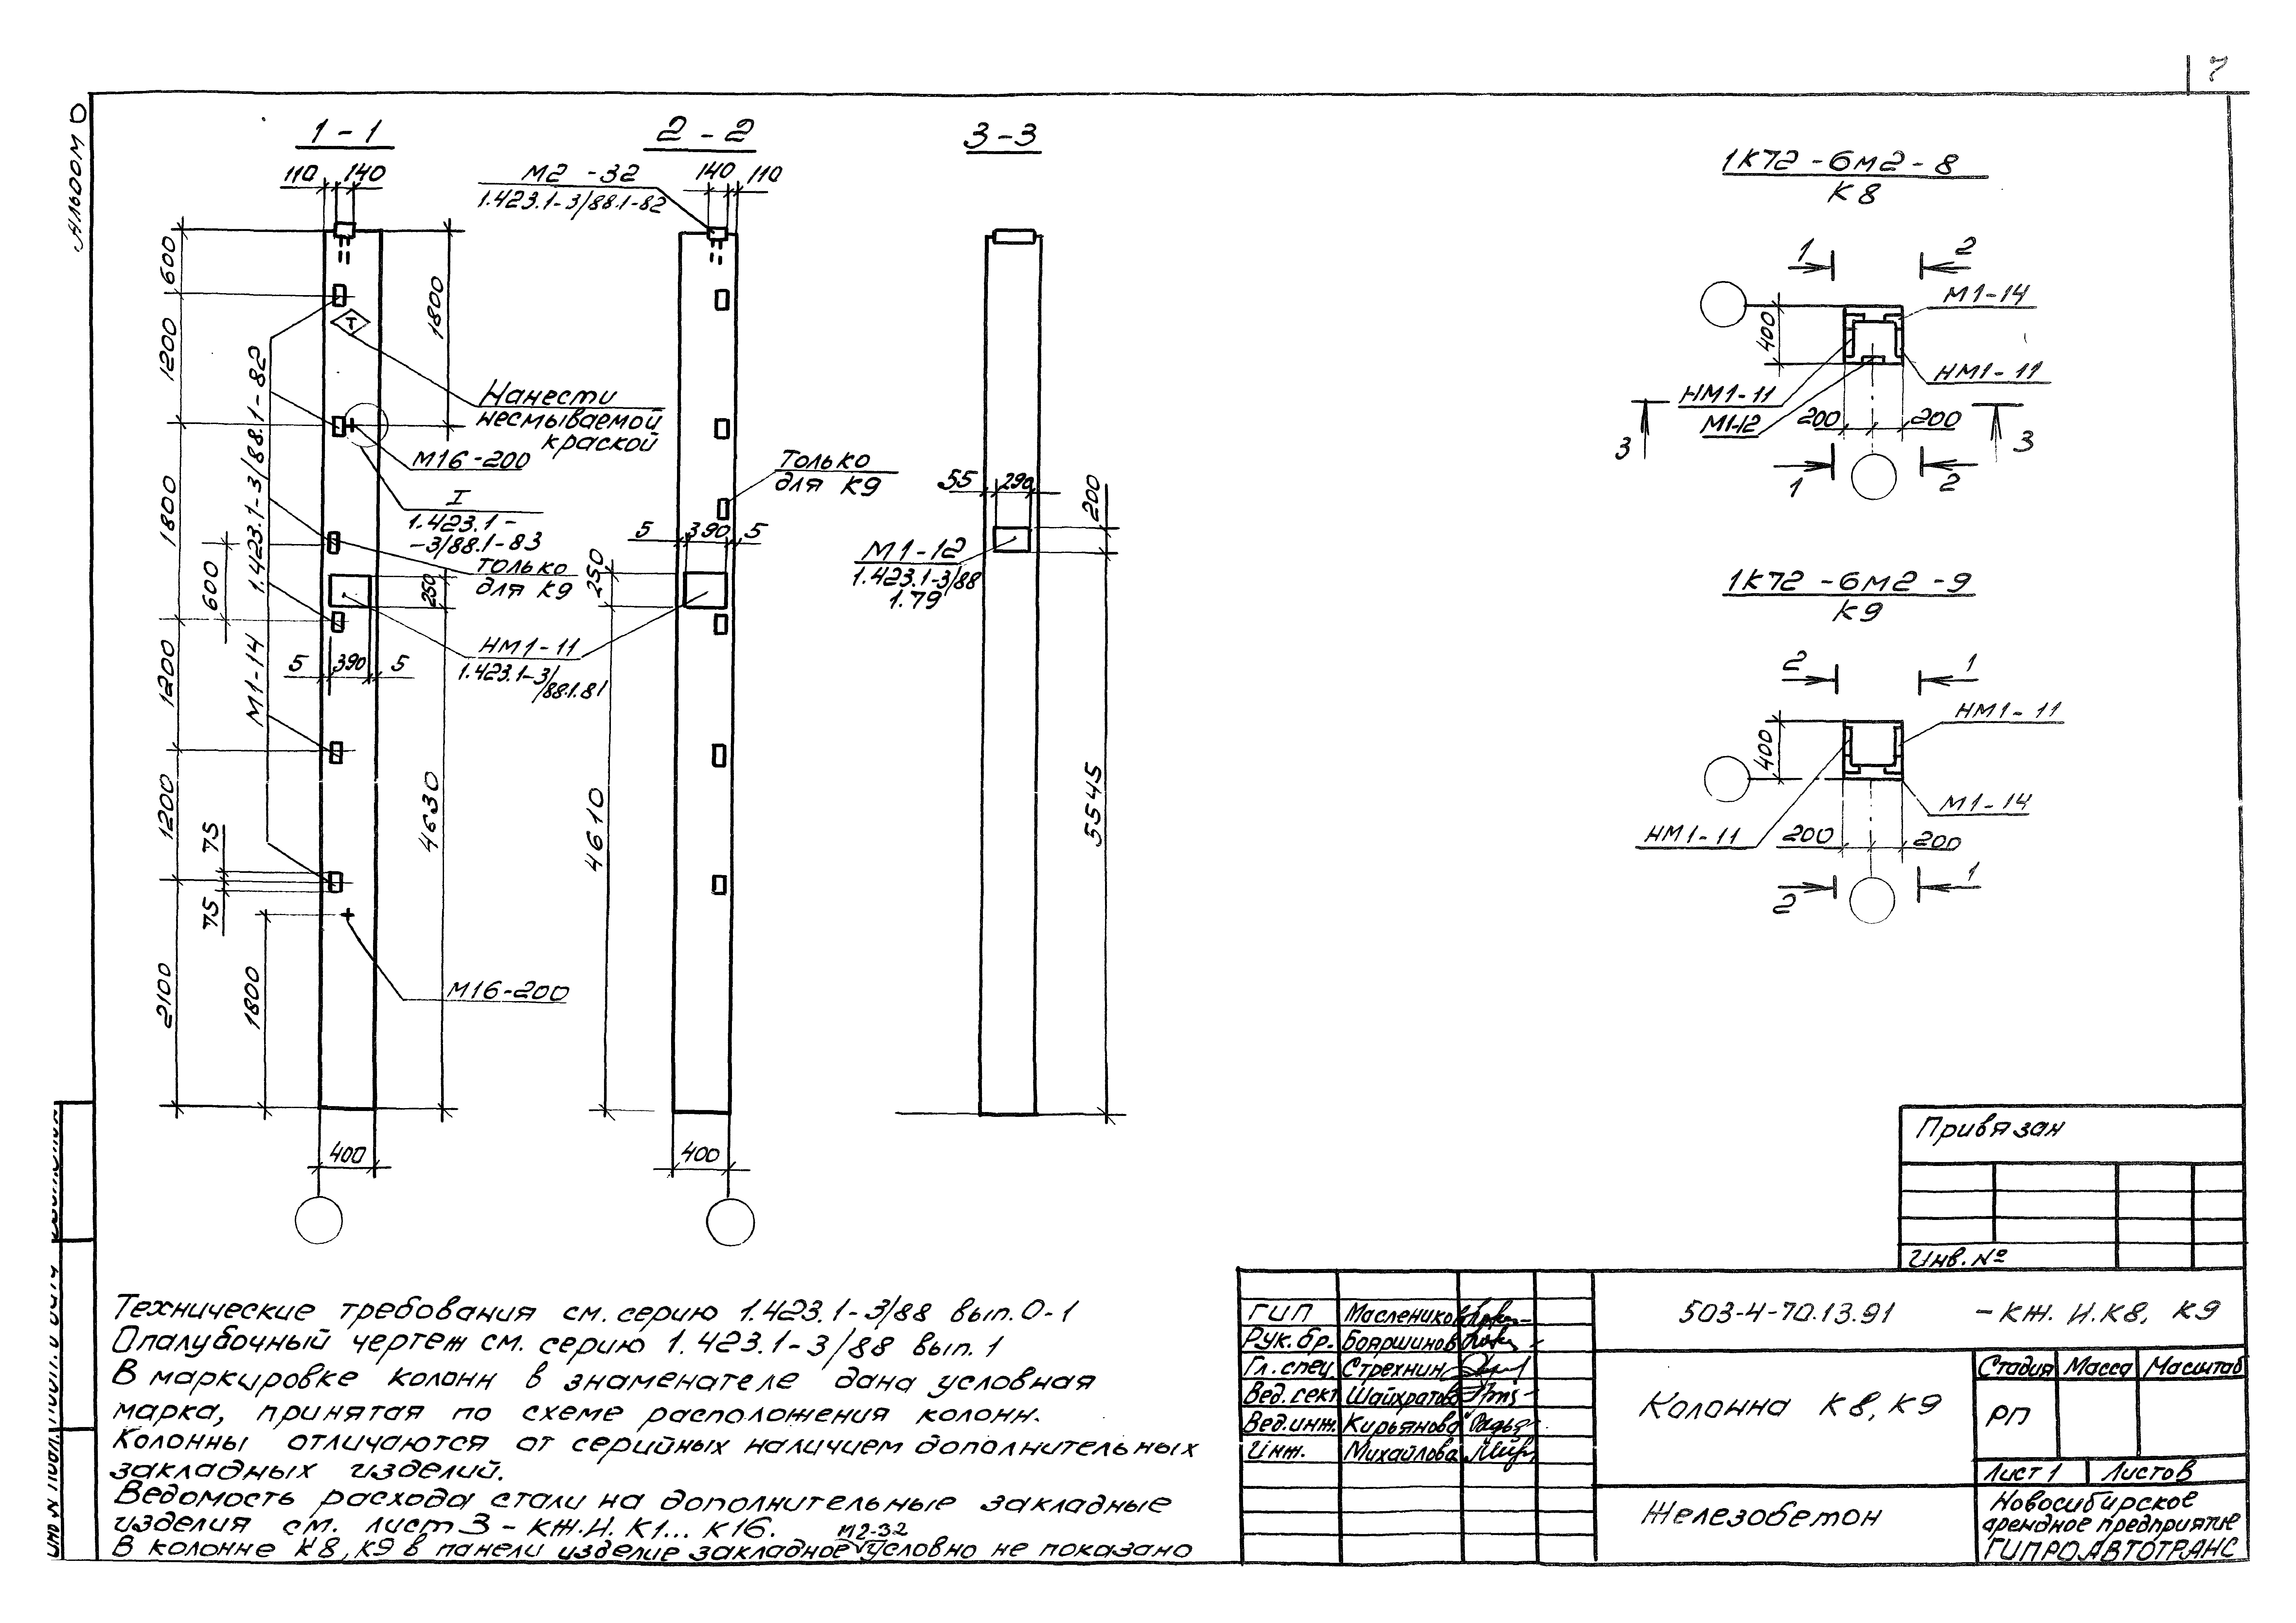 7
Альбом 0
1-1
110
140
600
1200
1800
1200
1200
2100
600
75
75
1800
М1-14 1.423.1-3/88.1-82
1800
Нанести
несмываемой
краской
М16-200
I
1.423.1-
-3/88.1-83
только
для К9
250
НМ1-11
1.423.1-3/
/88.1.81
5 390 5
4630
М16-200
400
2-2
М2 -32
1.423.1-3/88.1-82
140
110
Только
для К9
5 390 5
250
4610
400
3-3
55
290
200
М1-12
1.423.1-3/88
1.79
5545
1К72-6М2-8
К8
1
2
М1-14
400
НМ1-11
НМ1-11
М1-12
200
200
3
3
1
2
1К72-6М2-9
К9
2
1
НМ1-11
400
М1-14
НМ1-11
200
200
2
1
Технические требования см. серию 1.423.1-3/88 вып. 0-1
Опалубочный чертеж см. серию 1.423.1-3/88 вып. 1
В маркировке колонн в знаменателе дана условная
марка, принятая по схеме расположения колонн.
Колонны отличаются от серийных наличием дополнительных
закладных изделий.
Ведомость расхода стали на дополнительные закладные
изделия см. лист 3 - КЖ.И. К1... К16.
М2-32
В колонне К8, К9 в панели изделие закладное условно не показано
Привязан
Инв. №
ГИП Маслеников
Рук. бр. Бояршинов
Гл. спец. Стрехнин
Вед. сект. Шайхратов
Вед. инж. Кирьянова
Инж. Михайлова
503-4-70.13.91 - КЖ. И. К8, К9
Колонна К8, К9
Стадия Масса Масштаб
РП
Лист 1 Листов
Железобетон
Новосибирское
арендное предприятие
ГИПРОАВТОТРАНС